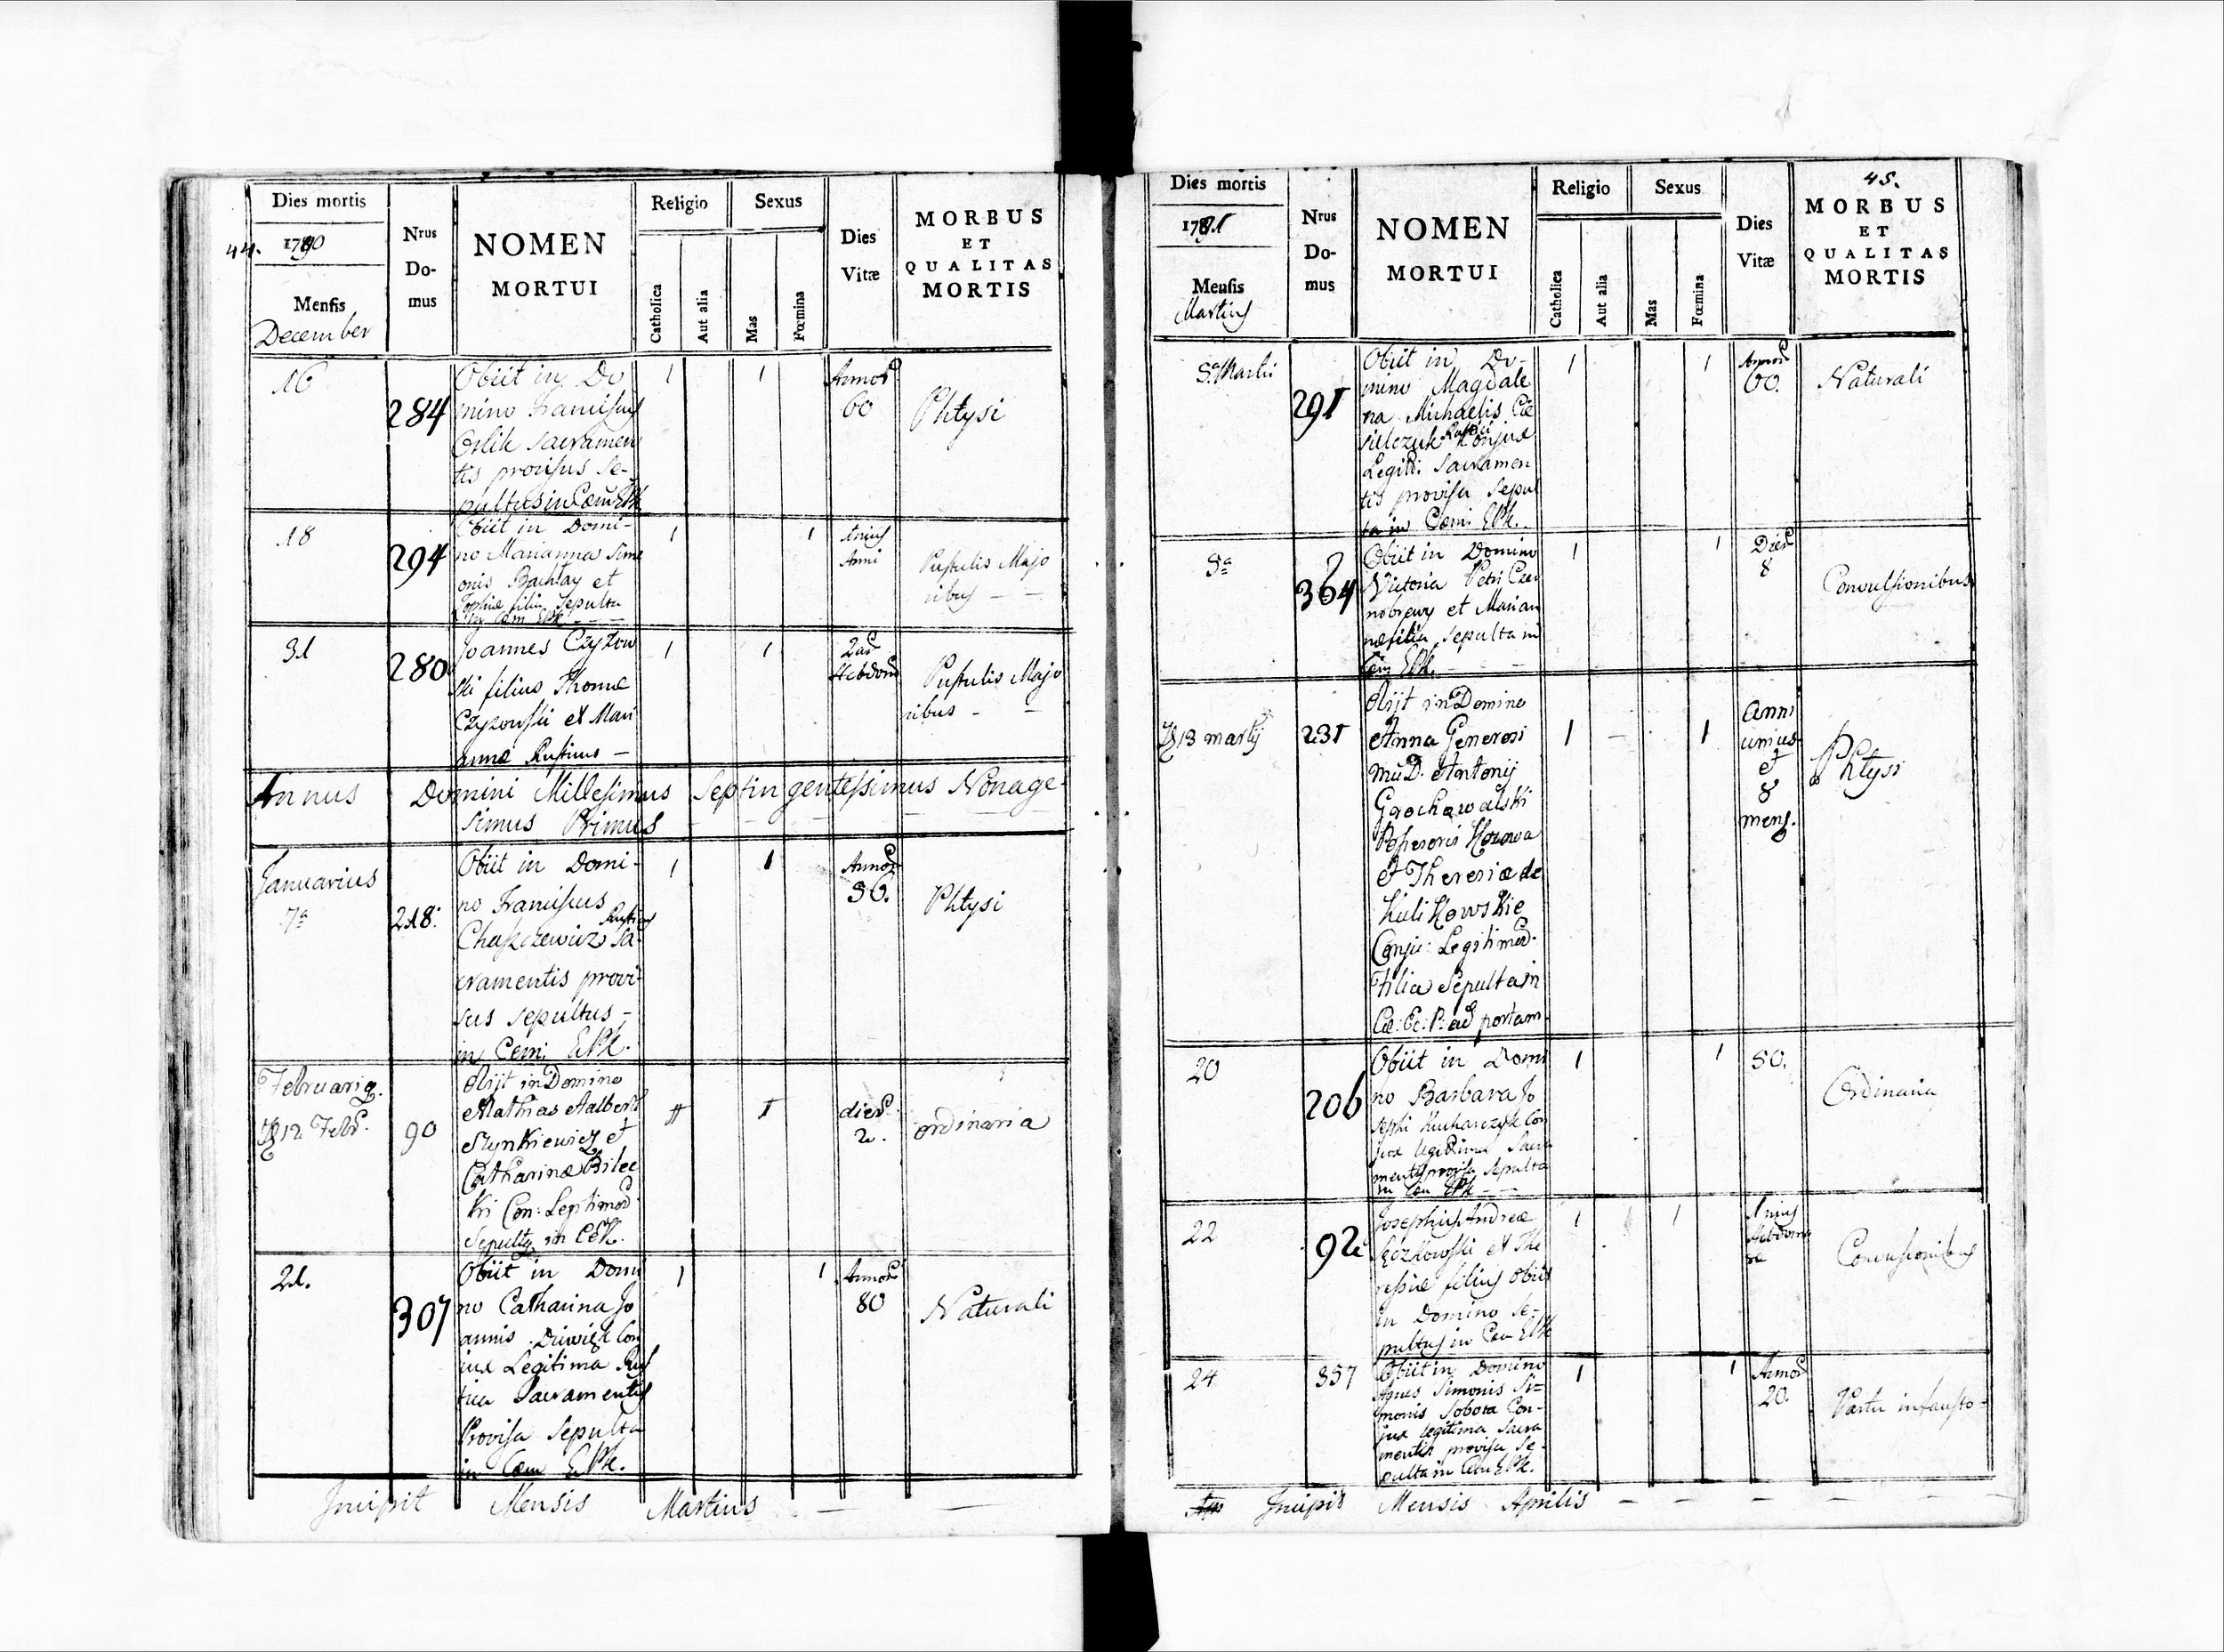 44.
Dies mortis
1790
Mensis
December
Nrus Domus
NOMEN
MORTUI
Religio
Catholica
Aut alia
Sexus
Mas
Fœmina
Dies
Vitæ
MORBUS
ET
QUALITAS
MORTIS
16
284
Obiit in Do
mino Francisus
Orlik Sacramen
tis provisus Se-
pultus in Cœm EPk
1
1
Annor
60
Phtysi
18
294
Obiit in Domi-
no Marianna Sim
onis Bachtay et
Sophiæ filia Sepulta
in Cœm EPk
1
1
Unius
Anni
Pustulis Majo
ribus
31
280
Joannes Czyzow
ski filius Thomæ
Czyzowski et Mari
annæ Rusticus
1
1
2ar
Hebdom
Pustulis Majo
ribus
Annus Domini Millesimus Septingentesimus Nonage-
simus Primus
Januarius
7a
218.
Obiit in Domi-
no Francisus
Rusticus
Chaszczewicz Sa-
cramentis provi-
sus sepultus
in Cem. EPk.
1
1
Annor
36.
Phtysi
Februarig.
12 Febr.
90
Obijt in Domino
Mathias Aalberti
Szynkiewicz et
Catharinæ Bilec
ki Con: Legitimor
Sepultg in CEK.
1
1
dier
2.
ordinaria
21.
307
Obiit in Domi
no Catharina Jo
annis Con
jux Legitima Rus
tica Sacramentis
Provisa Sepulta
in Cœm EPk.
1
1
Annor
80
Naturali
Incipit Mensis Martius
Dies mortis
1791
Mensis
Martius
Nrus Domus
NOMEN
MORTUI
Religio
Catholica
Aut alia
Sexus
Mas
Fœmina
Dies
Vitæ
45.
MORBUS
ET
QUALITAS
MORTIS
5. Martii
291
Obiit in Do-
mino Magdale
na Michaelis Cie
sielczuk Rustici Conjux
Legiti: Sacramen
tis provisa Sepul
ta in Cœm: EPk.
1
1
Annor
60.
Naturali
8a
364
Obiit in Domino
Victoria Petri Czer
nobrewy et Marian
næ filia Sepulta in
Cœm EPk.
1
1
Dier
8
Convulsionibus
13 martij
231
Obijt in Domino
Anna Generosi
M: D. Antonij
Grochowalski
Possesoris Kozowa
et Theresiæ de
Kulikowskie
Conju: Legitimor.
Filia Sepulta in
Cœ: Ec: P: ad portam.
1
1
Anni
unius
et
8
mens.
Phtysi
20
206
Obiit in Domi
no Barbara Jo
sephi Kucharczyk Con
jux legitima Sacra
mentis provisa Sepulta
in Cœm EPk
1
1
50.
Ordinaria
22
92
Josephus Andreæ
Sączkowski et The
resiæ filius Obiit
in Domino Se-
pultus in Cœm EPk
1
1
Unius
Hebdoma
dæ
Convulsionibus
24
357
Obiit in Domino
Agnes Simonis Si=
monis Sobota Con-
jux legitima Sacra
mentis provisa Se-
pulta in Cœm EPk.
1
1
Annor
20.
Partu infausto
Incipit Mensis Aprilis